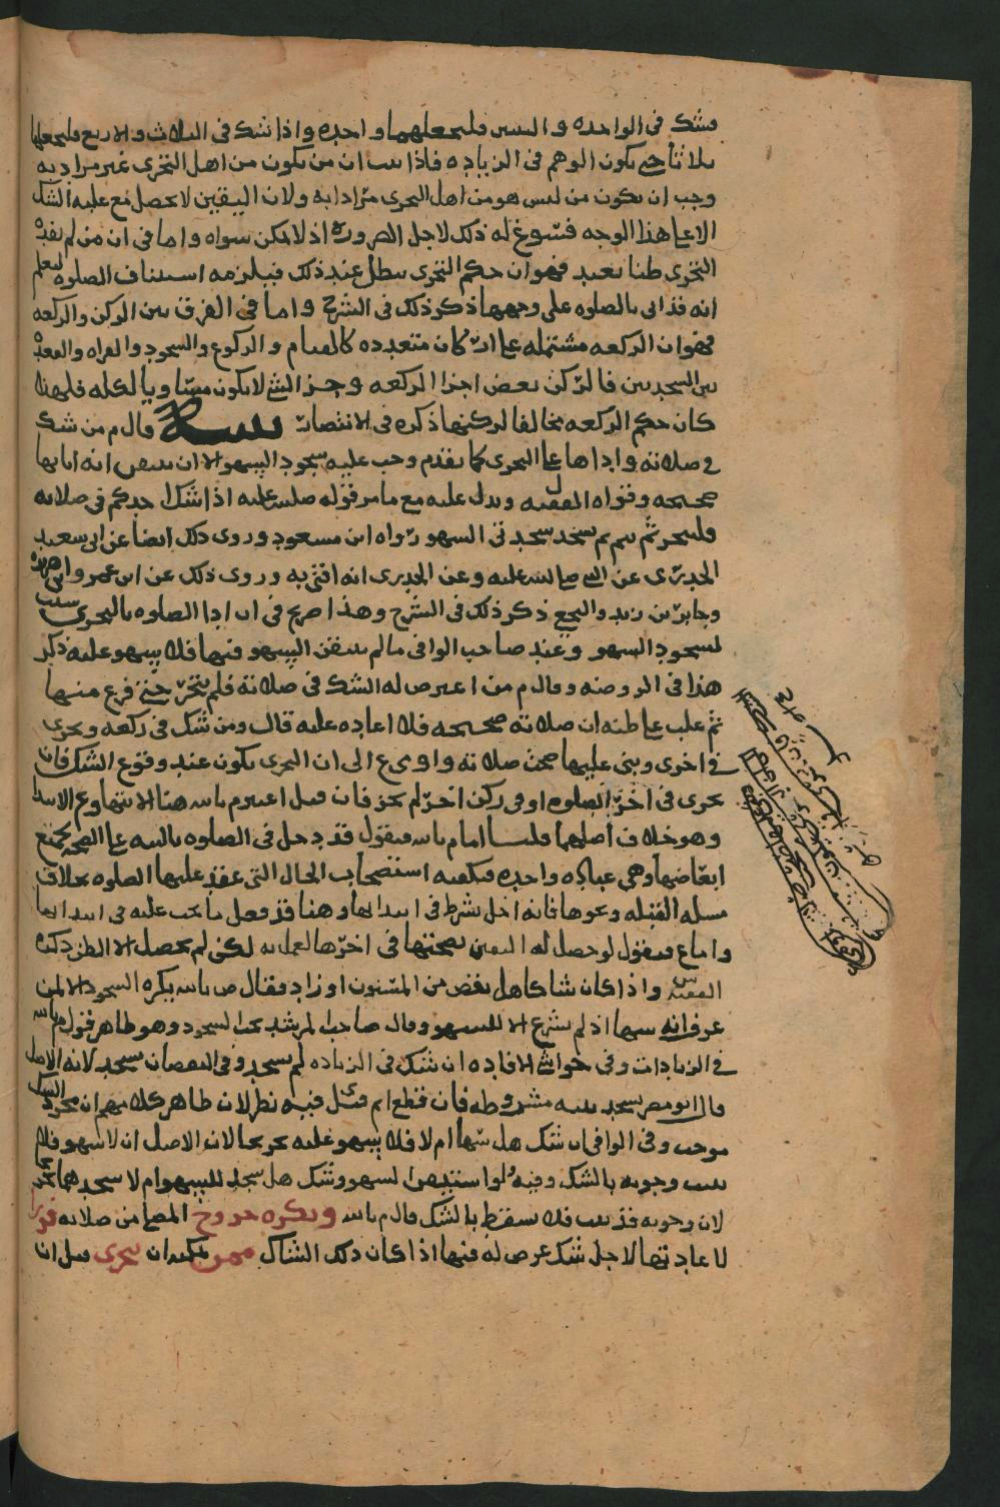 فشك في الواحده والثنتين فليجعلهما واحده واذا شك في الثلاث والاربع فليجعلها
ثلاثا حتى يكون الوهم في الزياده فاذا ثبت ان من يكون من اهل التحري غير مراد به
وجب ان يكون من ليس هو من اهل التحري مرادا به ولان اليقين لا يحصل مع غلبه الشك
الا على هذا الوجه فسوغ له ذلك لاجل الضروره اذ لا يمكن سواه واما في ان من لم يفده
التحري ظنا يعيد فهو ان حكم التحري يبطل عند ذلك فيلزمه استئناف الصلوه ليعلم
انه قد اتى بالصلوه على وجهها ذكر ذلك في الشرح واما في الفرق بين الركن والركعه
فهو ان الركعه مشتمله على اركان متعدده كالقيام والركوع والسجود والقراه والقعده
بين السجدتين فالركن بعض اجزا الركعه وجزا الشي لا يكون مساويا لكله فلهذا
كان حكم الركعه مخالفا لركنها ذكره في الانتصار تنبيه قال م من شك
في صلاته واداها على التحري كما تقدم وجب عليه سجود السهو الا ان يتيقن انه اتى بها
صحيحه وقواه الفقيه ل ويدل عليه مع ما مر قوله صلى الله عليه اذا شك احدكم في صلاته
فليتحر ثم يتم ثم يسجد سجدتي السهو رواه ابن مسعود وروى ذلك ايضا عن ابي سعيد
الخدري عن النبي صلى الله عليه وعن الخدري انه افتى به وروى ذلك عن ابن عمر وابي هريره
وجابر بن زيد والنخعي ذكر ذلك في الشرح وهذا صريح في ان ادا الصلوه بالتحري سبب
لسجود السهو وعند صاحب الوافي ما لم يتيقن السهو فيها فلا سهو عليه ذكر
هذا في الروضه وقال م من اعترض له الشك في صلاته فلم يتحر حتى فرغ منها
ثم غلب على ظنه ان صلاته صحيحه فلا اعاده عليه قال ومن شك في ركعه وتحرى
في اخرى وبنى عليها صحت صلاته واومى ع الى ان التحري يكون عند وقوع الشك فان
تحرى في اخر الصلوه او في ركن اخر لم يجز فان قيل اعتبر م بالله هنا الانتها وع الابتدا
وهو خلاف اصلهما قلنا اما م بالله فيقول قد دخل في الصلوه بالنيه على الصحه بجميع
ابعاضها وهي عباده واحده فيكفيه استصحاب الحال التي عقد عليها الصلوه بخلاف
مسله القبله ونحوها فانه اخل بشرط في ابتدائها وهنا قد فعل ما يجب عليه في ابتدائها
واما ع فيقول لو حصل له اليقين بصحتها في اخرها لعمل به لكن لم يحصل الا الظن ذكره
الفقيه س واذا كان شاكا هل نقص من المسنون او زاد فقال ص بالله يكره السجود الا لمن
عرف انه سها اذ لم يشرع الا للسهو وقال صاحب المرشد يجب السجود وهو ظاهر قول م بالله
في الزيادات وفي حواشي الافاده ان شك في الزياده لم يسجد وفي النقصان سجد لانه الاصل
قال ابو مضر يسجد بنيه مشروطه فان قطع اثم وقيل فيه نظر لان ظاهر كلامهم ان مجرد الشك
موجب وفي الوافي ان شك هل سها ام لا فلا سهو عليه تخريجا لان الاصل ان لا سهو فلم
يثبت وجوبه بالشك وفيه ولو استيقن السهو وشك هل سجد للسهو ام لا سجدهما تخريجا
لان وجوبه قد ثبت فلا يسقط بالشك قال م بالله ويكره خروج المصلي من صلاته فورا
لاعادتها لاجل شك عرض له فيها اذا كان ذلك الشاك ممن يمكنه ان يتحرى قبل ان